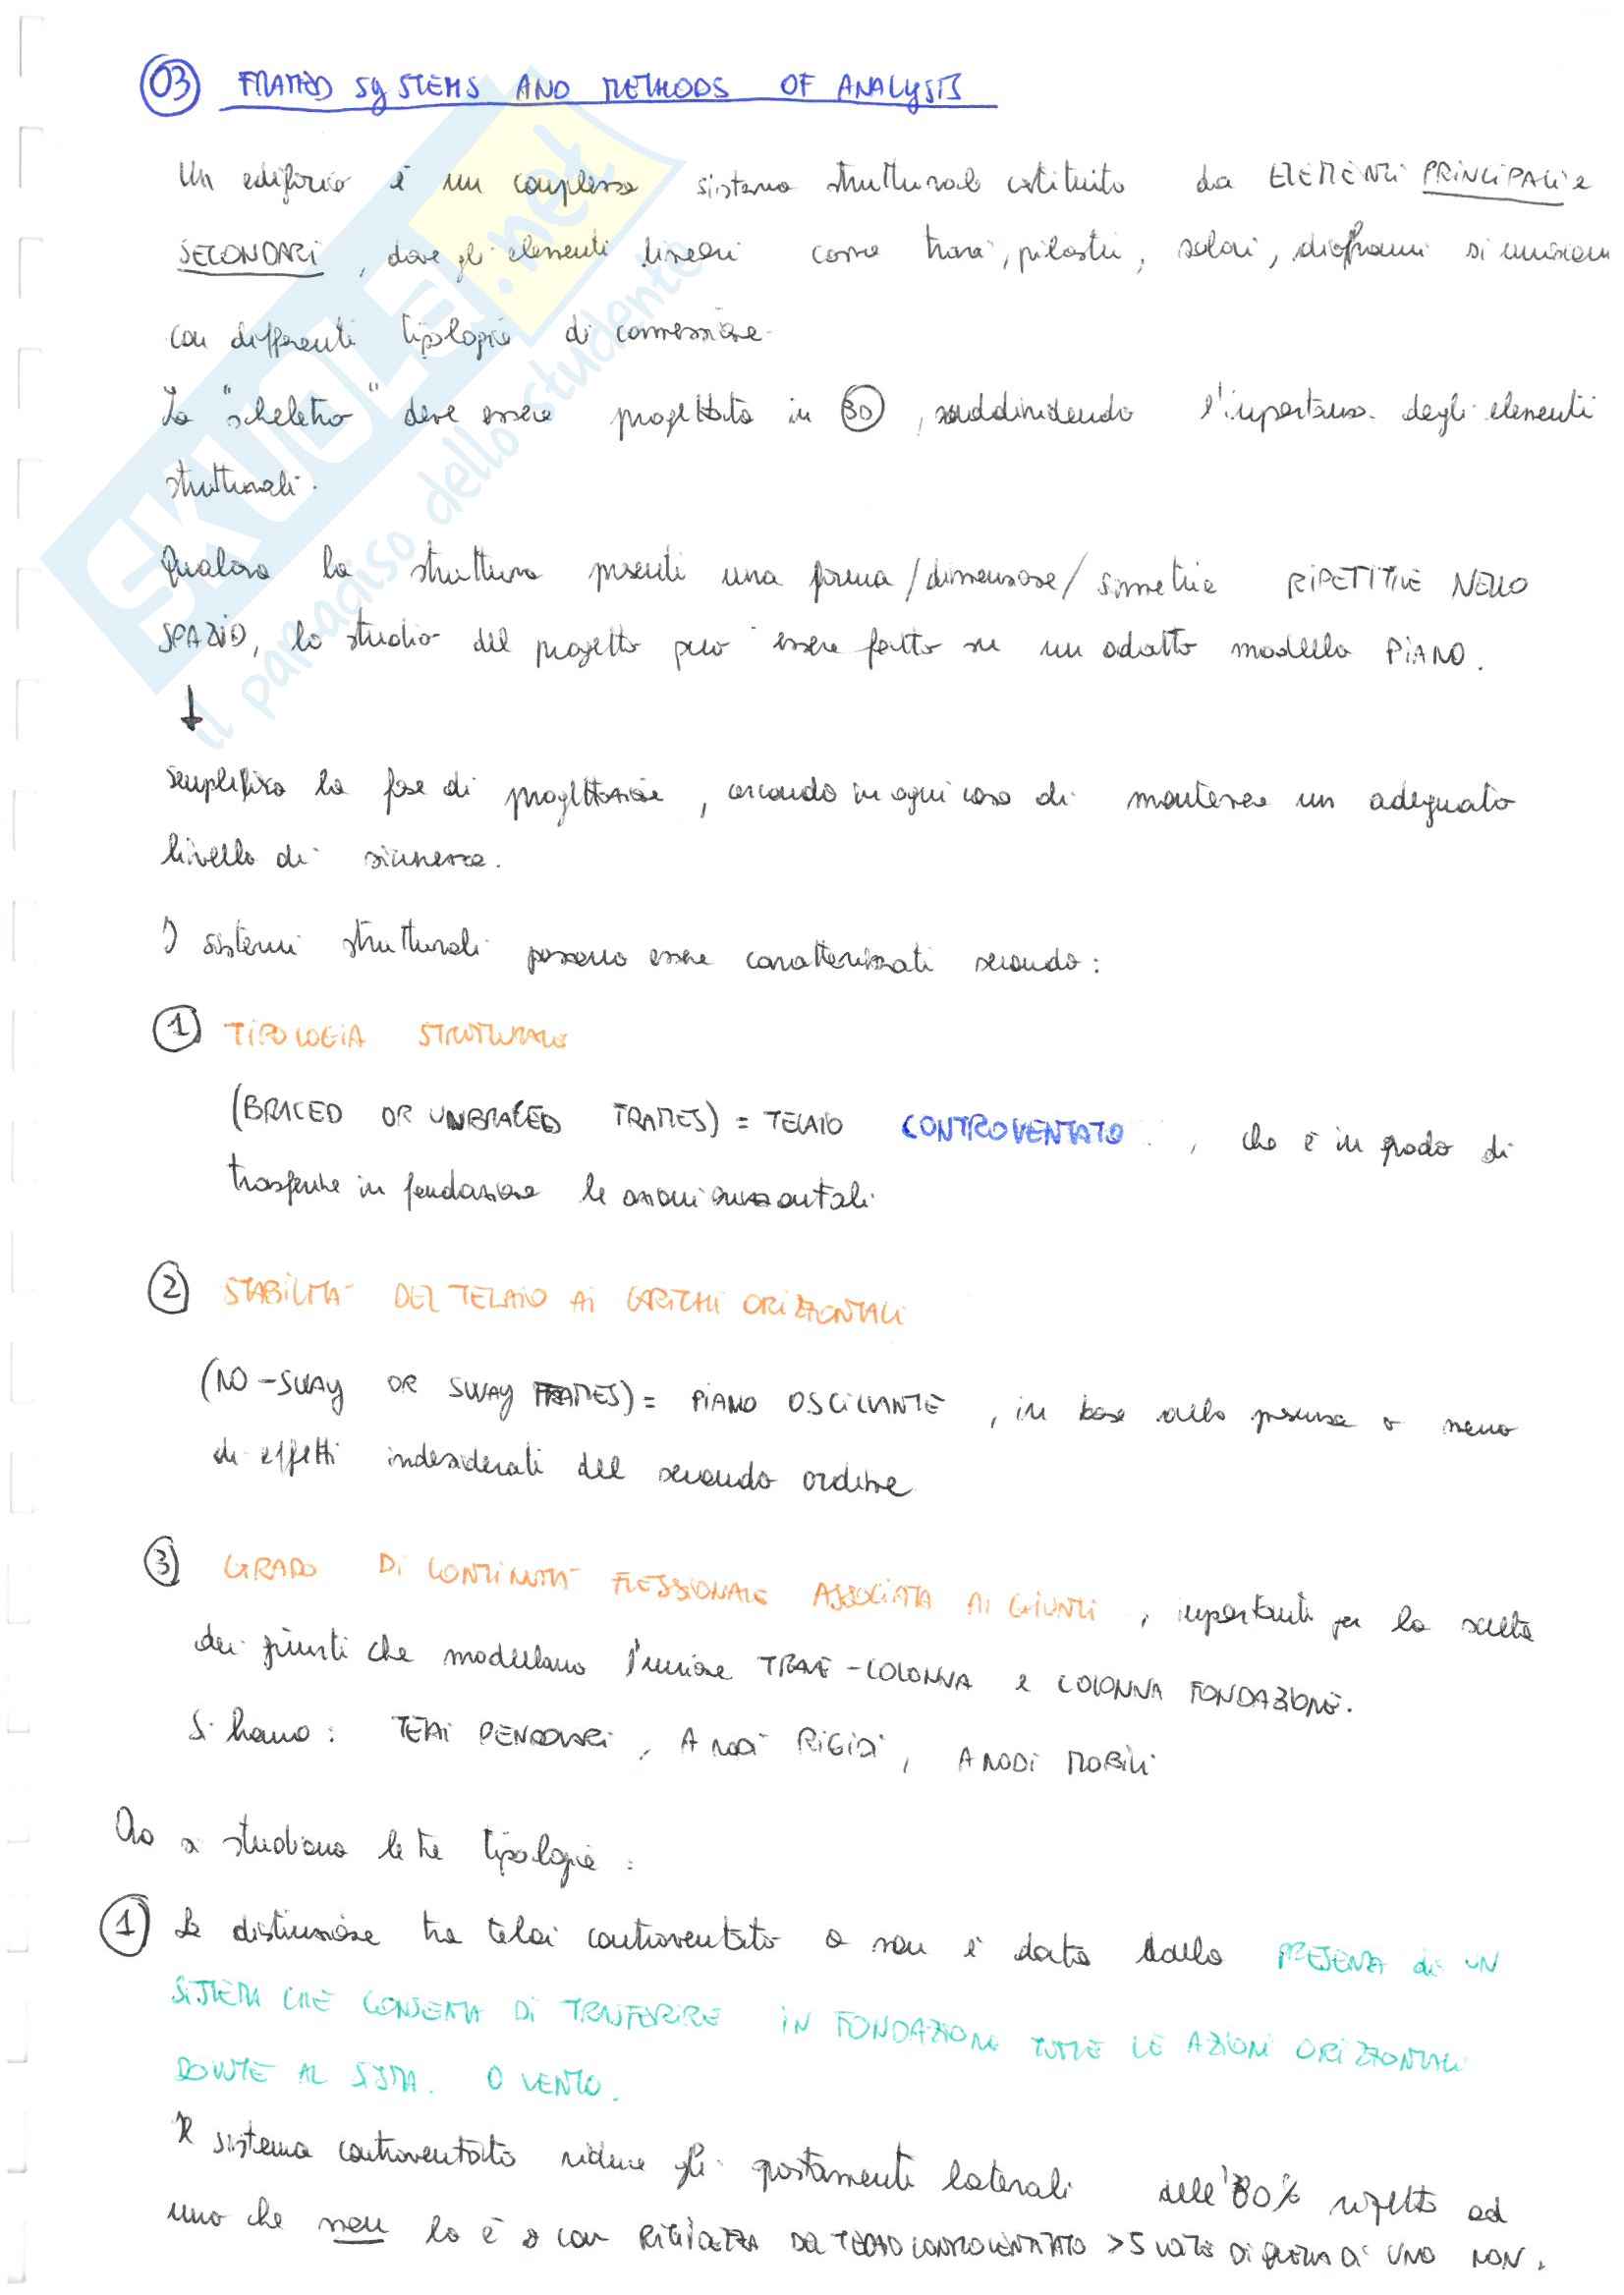 03 FRAMED SYSTEMS AND METHODS OF ANALYSIS
Un edificio è un complesso sistema strutturale costituito da ELEMENTI PRINCIPALI e
SECONDARI, dove gli elementi lineari come travi, pilastri, solai, diaframmi si uniscono
con differenti tipologie di connessione.
Lo "scheletro" deve essere progettato in 3D, suddividendo l'importanza degli elementi
strutturali.
Qualora la struttura presenti una forma/dimensione/simmetria RIPETITIVE NELLO
SPAZIO, lo studio del progetto può essere fatto su un adatto modello PIANO.
↓
semplifica la fase di progettazione, cercando in ogni caso di mantenere un adeguato
livello di sicurezza.
I sistemi strutturali possono essere caratterizzati secondo:
1 TIPOLOGIA STRUTTURALE
(BRACED OR UNBRACED FRAMES) = TELAIO CONTROVENTATO, che è in grado di
trasferire in fondazione le azioni orizzontali
2 STABILITÀ DEL TELAIO AI CARICHI ORIZZONTALI
(NO-SWAY OR SWAY FRAMES) = PIANO OSCILLANTE, in base alla presenza o meno
di effetti indesiderati del secondo ordine
3 GRADO DI CONTINUITÀ FLESSIONALE ASSOCIATA AI GIUNTI, importanti per la scelta
dei giunti che modellano l'unione TRAVE-COLONNA e COLONNA FONDAZIONE.
Si hanno: TELAI PENDOLARI, A NODI RIGIDI, A NODI MOBILI
Ora si studiano le tre tipologie:
1 La distinzione tra telai controventato o non è data dalla PRESENZA di UN
SISTEMA CHE CONSENTA DI TRASFERIRE IN FONDAZIONE TUTTE LE AZIONI ORIZZONTALI
DOVUTE AL SISMA. O VENTO.
Il sistema controventato riduce gli spostamenti laterali dell'80% rispetto ad
uno che non lo è o con RIGIDEZZA DEL TELAIO CONTROVENTATO >5 VOLTE DI QUELLA DI UNO NON.
SKUOLA.net
il paradiso dello studente